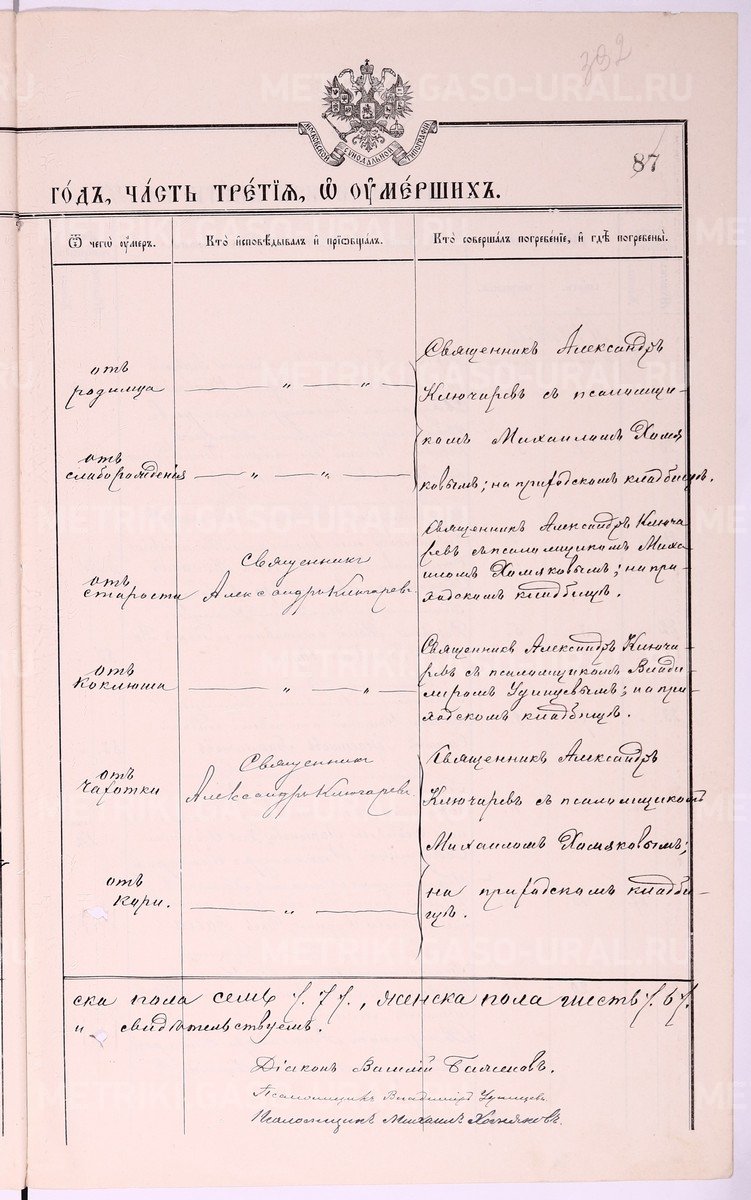 332
МОСКОВСКОЙ СѴНОДАЛЬНОЙ ТИПОГРАФІИ
87
ГО́ДЪ, ЧА́СТЬ ТРЕ́ТІѦ, Ѽ ОУ҆МЕ́РШИХЪ.
Ѿ чегѡ̀ оу҆́меръ.
Кто̀ и҆сповѣ́дывалъ и҆ прїѡбща́лъ.
Кто̀ соверша́лъ погребе́нїе, и҆ гдѣ̀ погребены̀.
отъ
родимца
— „ — „ —
Священникъ Александръ
Ключаревъ съ псаломщи-
комъ Михаиломъ Хомя
ковымъ; на приходскомъ кладбищѣ.
отъ
слаборожденія
— „ — „ —
отъ
старости
Священникъ
Александръ Ключаревъ
Священникъ Александръ Ключа
ревъ съ псаломщикомъ Миха
иломъ Хомяковымъ; на при-
ходскомъ кладбищѣ.
отъ
коклюша
— „ — „ —
Священникъ Александръ Ключа-
ревъ съ псаломщикомъ Влади-
міромъ Удинцевымъ; на при-
ходскомъ кладбищѣ.
отъ
чахотки
Священникъ
Александръ Ключаревъ
Священникъ Александръ
Ключаревъ съ псаломщикомъ
Михаиломъ Хомяковымъ;
на приходскомъ кладби-
щѣ.
отъ
кори.
— „ —
ска пола семь /. 7 /., женска пола шесть /. 6 /.
„ свидѣтельствуемъ.
Діаконъ Василій
Псаломщикъ Владиміръ Удинцевъ
Псаломщикъ Михаилъ Хомяковъ.
METRIKI.GASO-URAL.RU